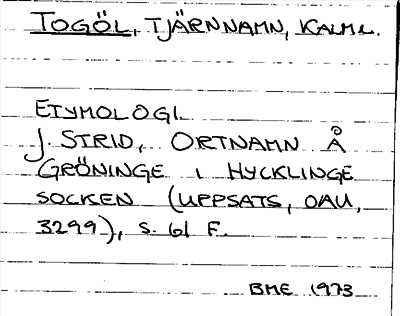 TOGÖL, TJÄRNNAMN, KALM L.
ETYMOLOGI.
J. STRID, ORTNAMN Å
GRÖNINGE I HYCKLINGE
SOCKEN (UPPSATS, OAU,
3299), S. 61 F.
BME 1973